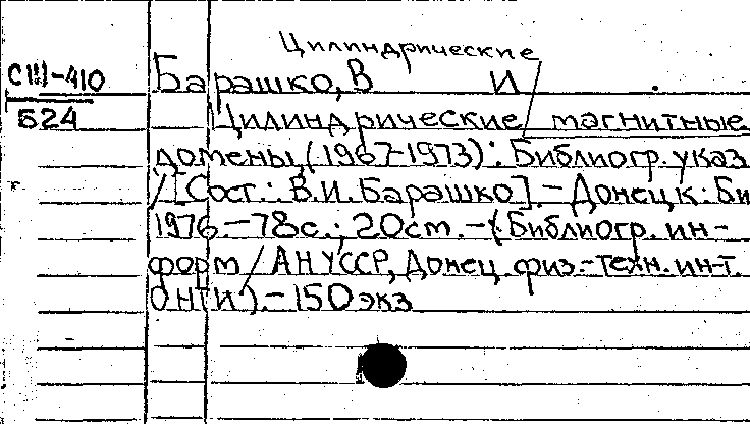 Цилиндрические
СШ-410 Барашко, В И .
Б24 Цилиндрические магнитные
домены, (1967-1973): Библиогр. указ
/[Сост.: В.И. Барашко]. - Донецк: Би
1976. - 78с.; 20см. - (Библиогр. ин-
форм / АН УССР, Донец. физ.-техн. ин-т.
ОНТИ.) - 150экз